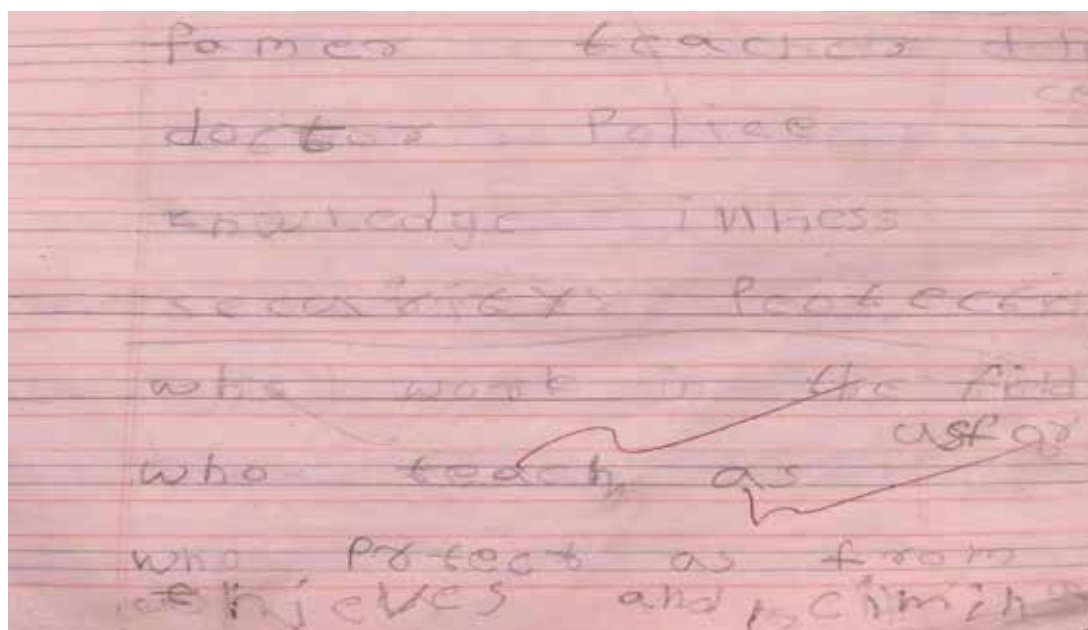 famer teacher
doctor Police
knowledge inness
security
who work in the field
who teach as
who Protect as from
and